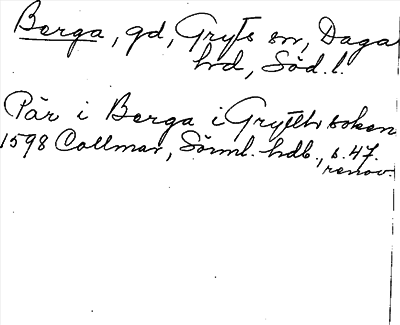 Berga, gd, Gryts sn, Daga
hd, Söd. l.
Pär i Berga i Grytth soken
1598 Collmar, Sörml. hdb., s. 47.
renov.